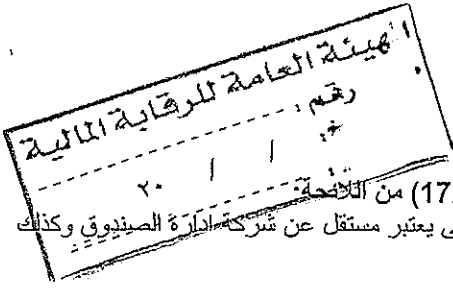 الهيئة العامة للرقابة المالية
رقم :
/ / ٢٠
17) من اللائحة:
ى يعتبر مستقل عن شركة ادارة الصندوق وكذلك